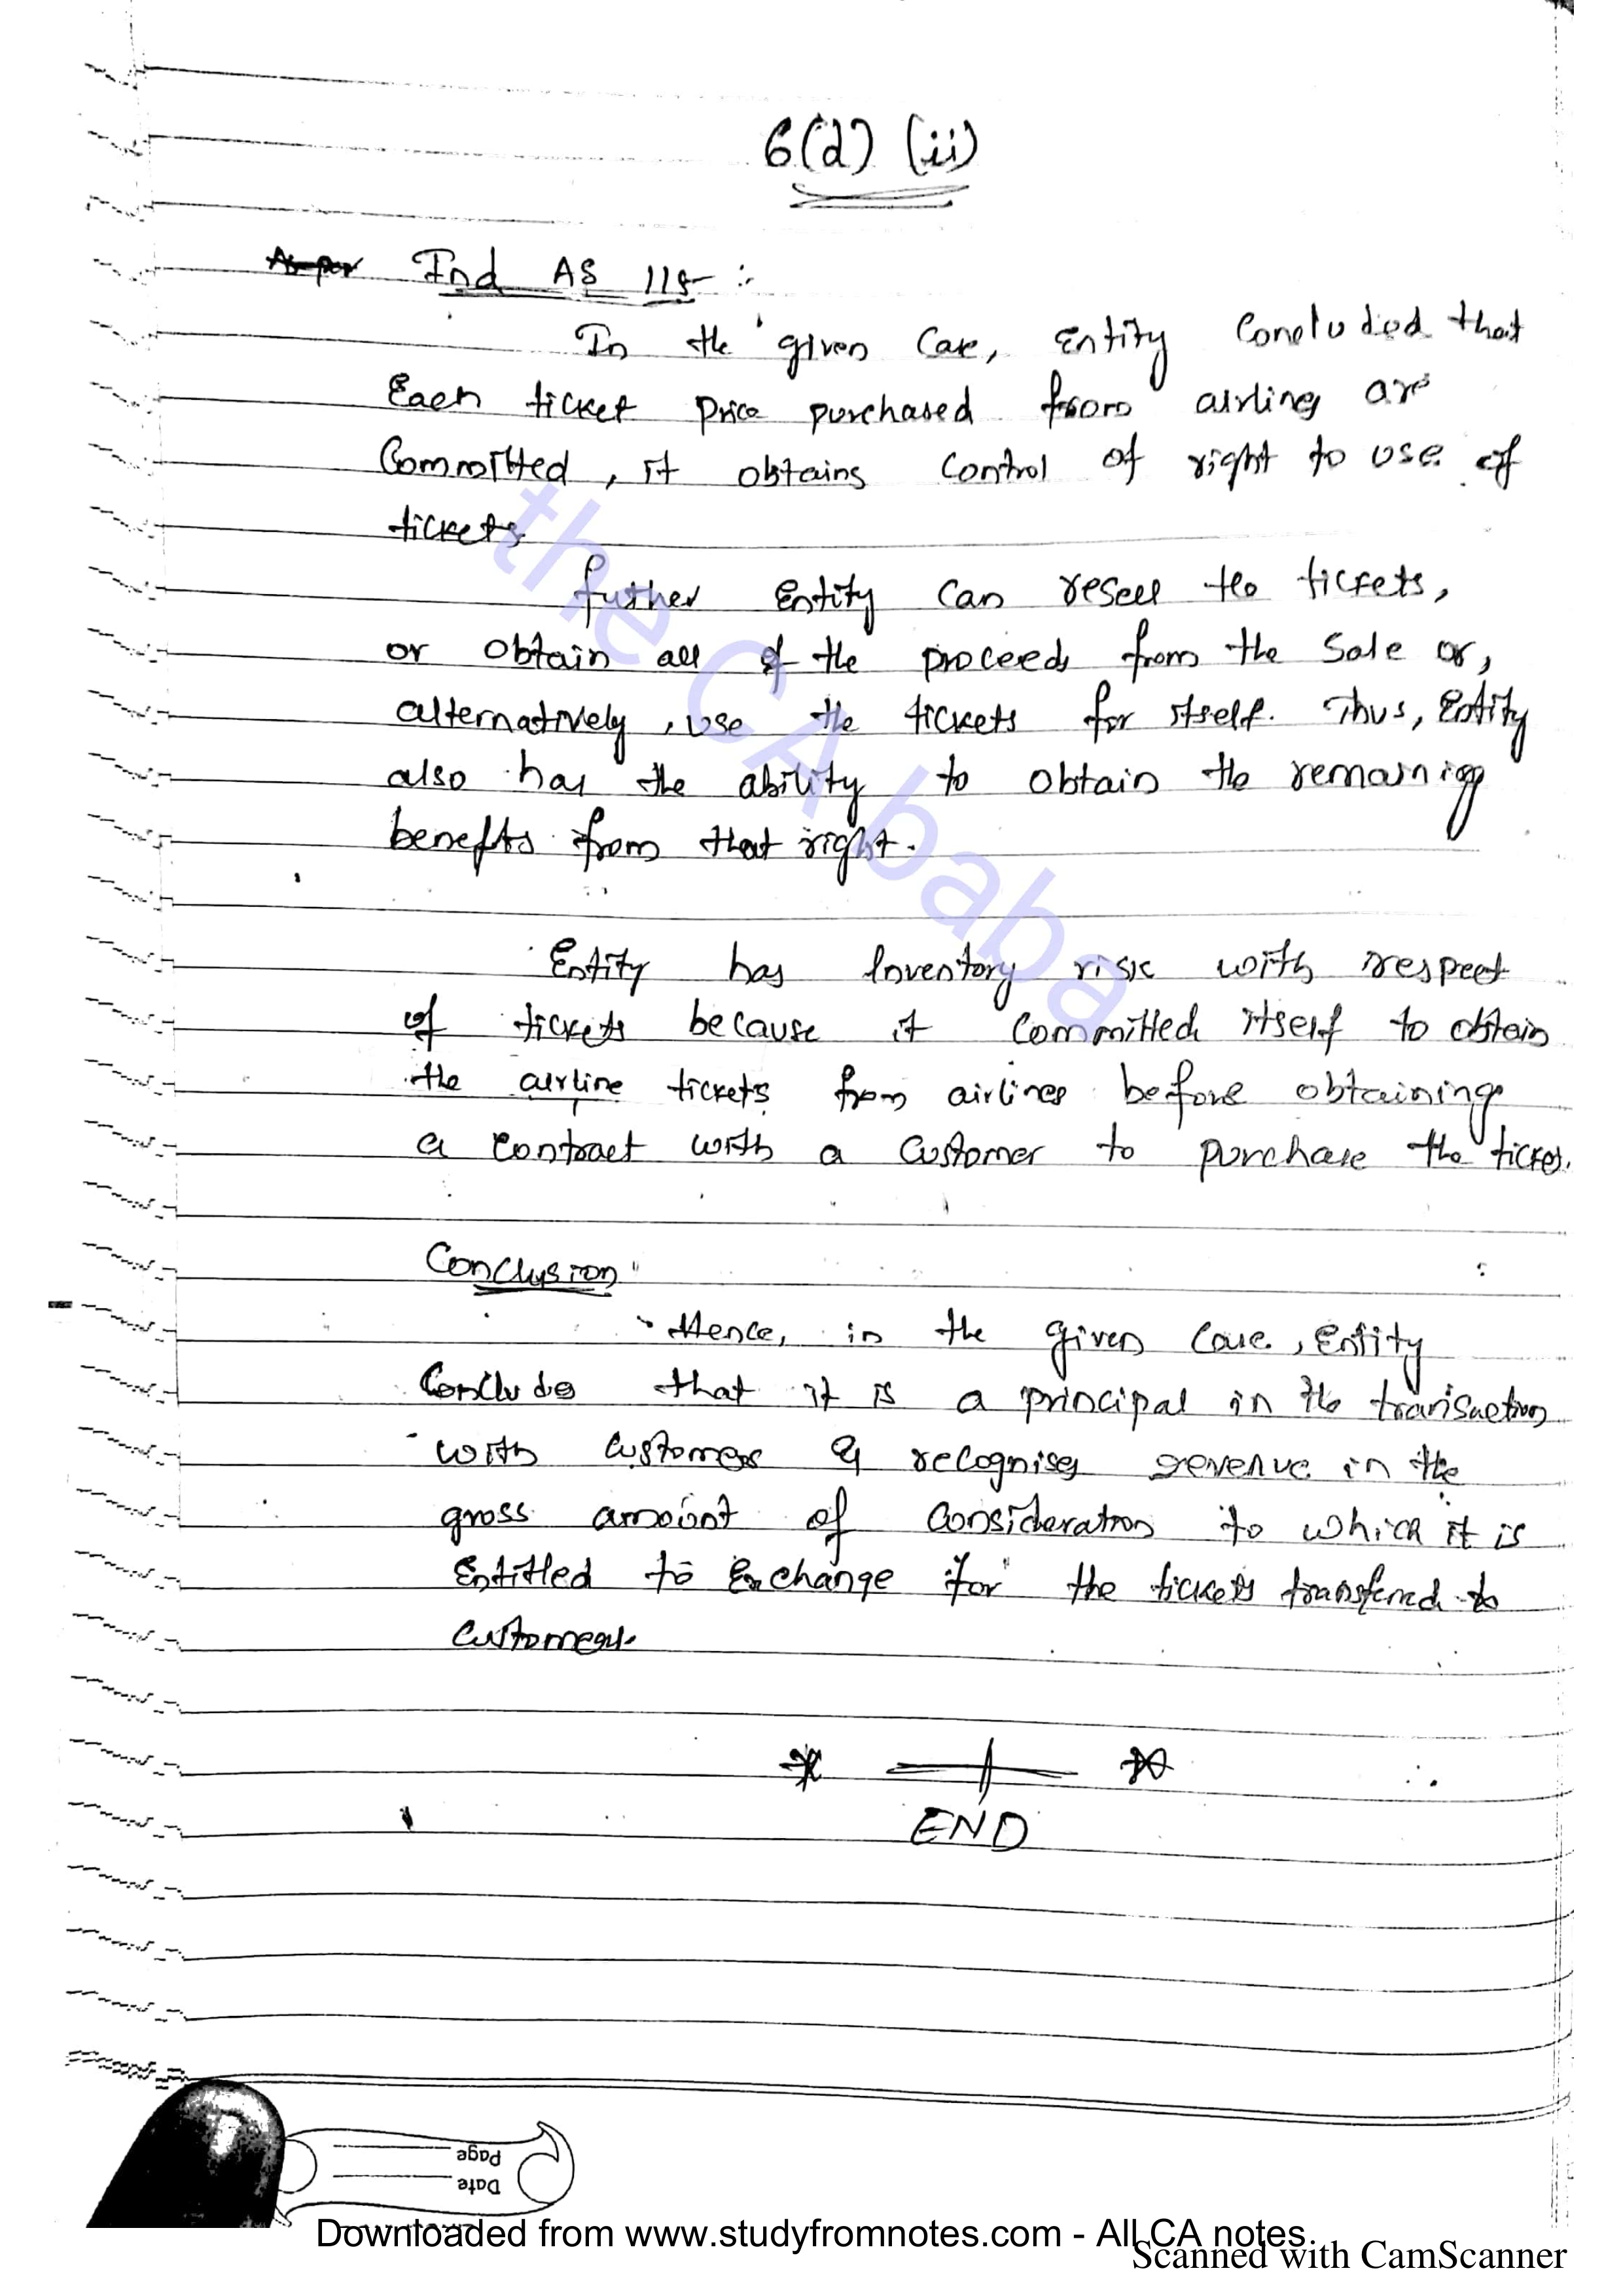 6(d) (ii)
As per Ind AS 115 :
In the given Case, Entity Concluded that
Each ticket price purchased from airlines are
Committed, it obtains control of right to use of
tickets.
further Entity can resell the tickets,
or obtain all of the proceeds from the Sale or,
alternatively, use the tickets for itself. Thus, Entity
also has the ability to obtain the remaining
benefits from that right.
Entity has Inventory risk with respect
of tickets because it committed itself to obtain
the airline tickets from airlines before obtaining
a contract with a customer to purchase the ticket.
Conclusion
Hence, in the given Case, Entity
Concludes that it is a principal in the transaction
with customers & recognises revenue in the
gross amount of consideration to which it is
Entitled to Exchange for the tickets transferred to
customers.
END
the CA baba
Page
Date
Downloaded from www.studyfromnotes.com - All CA notes
Scanned with CamScanner